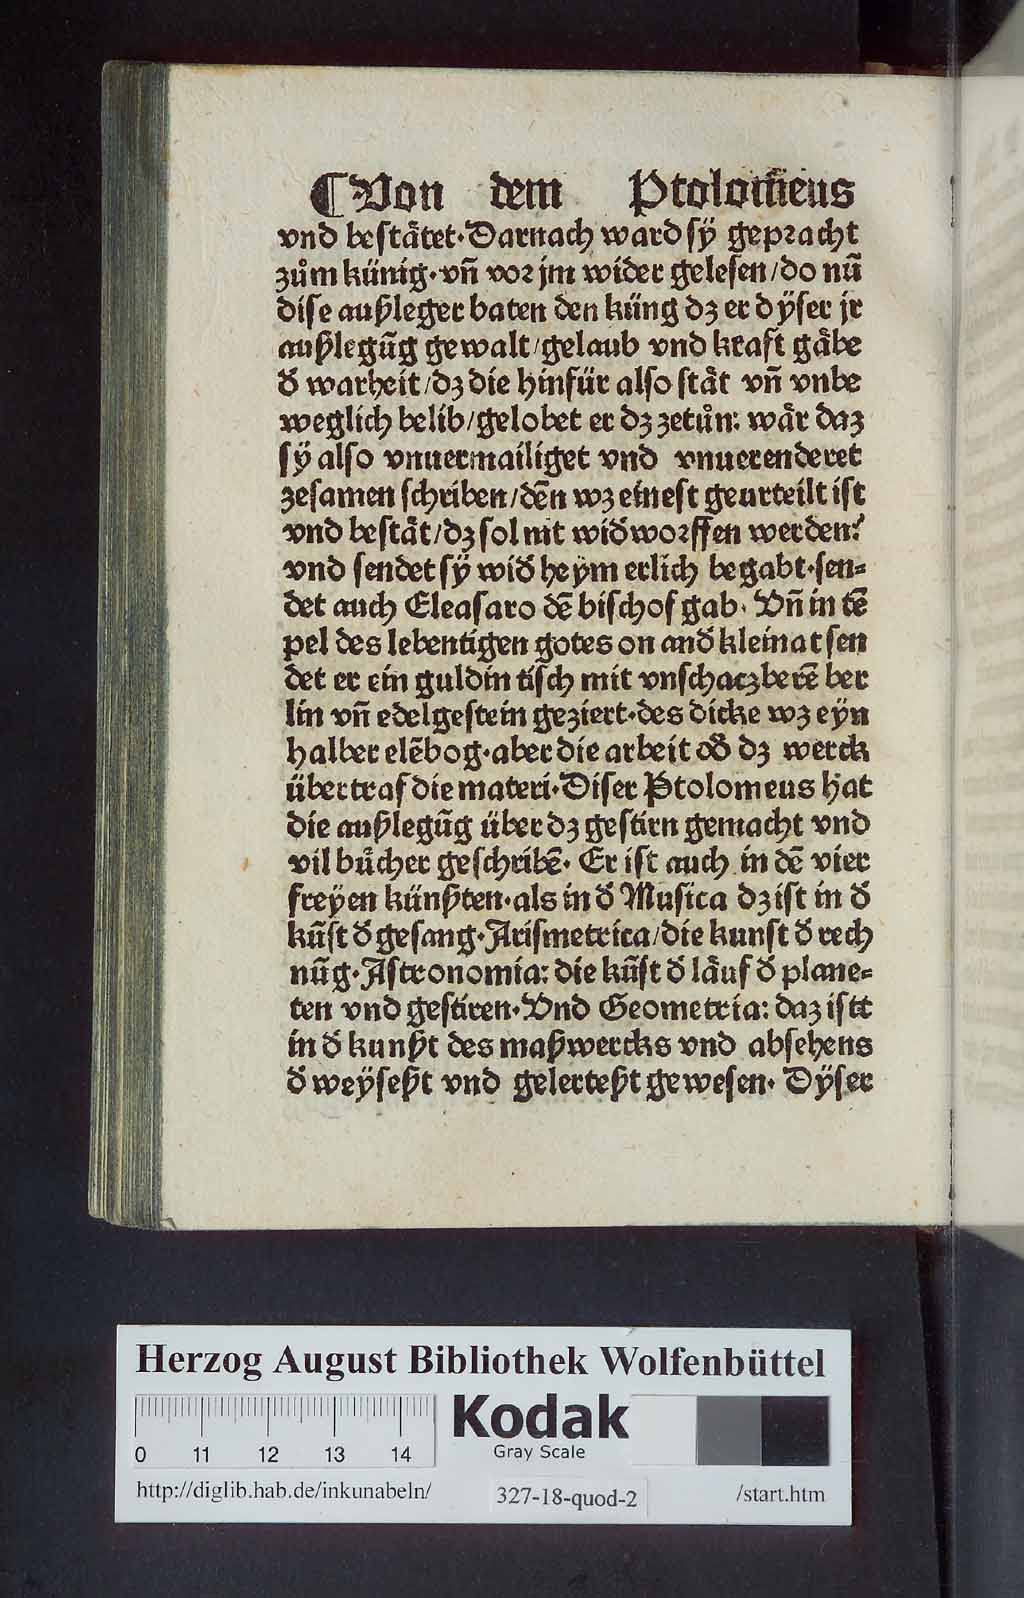 ⸿Von dem Ptolom̄eus
vnd bestätet·Darnach ward sÿ gepꝛacht
zům künig·vn̄ voꝛ jm wider gelesen/do nū
dise außleger baten den küng dz er dÿser jr
außlegūg gewalt/gelaub vnd kraft gäbe
đ warheit/dz die hinfür also stät vn̄ vnbe
weglich belib/gelobet er dz zetůn: wär daz
sÿ also vnuermailiget vnd vnuerenderet
zesamen schriben/dēn wz einest geurteilt ist
vnd bestät/dz sol nit widđwoꝛffen werden?
vnd sendet sÿ wiđ heÿm erlich begabt·sen⸗
det auch Eleasaro dē bischof gab· Vn̄ in tē
pel des lebentigen gotes on anđ kleinat sen
det er ein guldin tisch mit vnschaczberē ber
lin vn̄ edelgestein geziert·des dicke wz eÿn
halber elēbog·aber die arbeit ođ dz werck
übertraf die materi·Diser Ptolomeus hat
die außlegūg über dz gestirn gemacht vnd
vil bůcher geschribē· Er ist auch in dē vier
freÿen künßten·als in đ Musica dz ist in đ
kūst đ gesang·Arismetrica/die kunst đ rech
nūg·Astronomia: die kūst đ läuf đ plane⸗
ten vnd gestiren·Vnd Geometria: daz istt
in đ kunßt des maßwercks vnd absehens
đ weÿseßt vnd gelerteßt gewesen· Dÿser
Herzog August Bibliothek Wolfenbüttel
Kodak
Gray Scale
0 11 12 13 14
http://diglib.hab.de/inkunabeln/ 327-18-quod-2 /start.htm